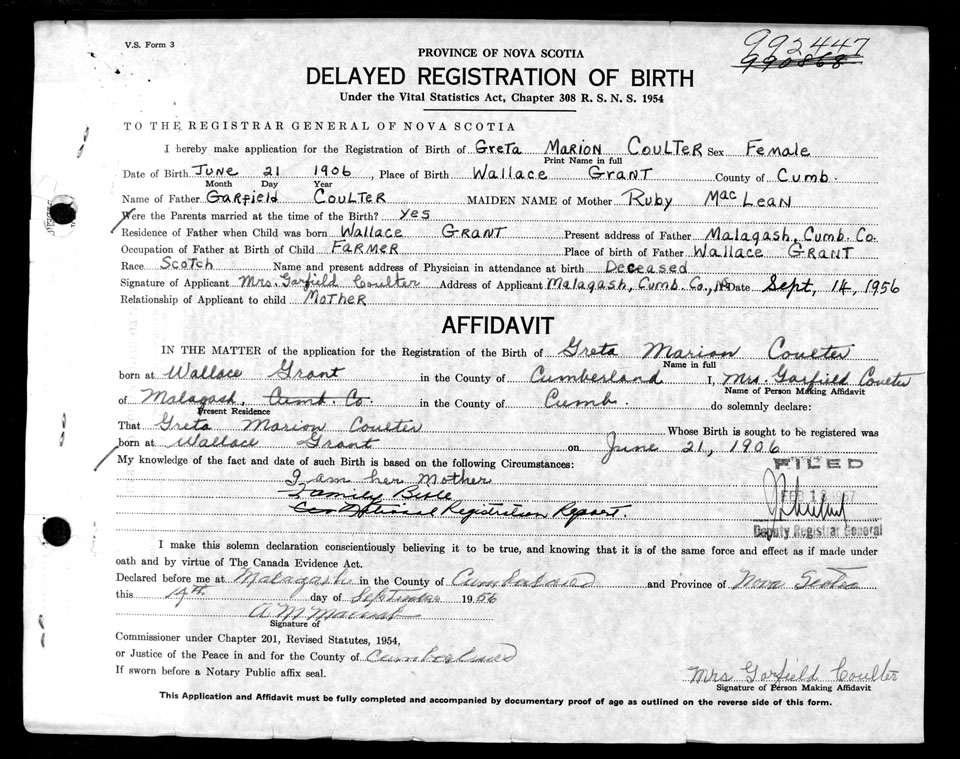 V.S. Form 3
992447
990868
PROVINCE OF NOVA SCOTIA
DELAYED REGISTRATION OF BIRTH
Under the Vital Statistics Act, Chapter 308 R. S. N. S. 1954
TO THE REGISTRAR GENERAL OF NOVA SCOTIA
I hereby make application for the Registration of Birth of Greta Marion Coulter Sex Female
Print Name in full
Date of Birth June 21 1906, Place of Birth Wallace Grant County of Cumb.
Month Day Year
Name of Father Garfield Coulter MAIDEN NAME of Mother Ruby MacLean
Were the Parents married at the time of the Birth? Yes
Residence of Father when Child was born Wallace Grant Present address of Father Malagash, Cumb. Co.
Occupation of Father at Birth of Child Farmer Place of birth of Father Wallace Grant
Race Scotch Name and present address of Physician in attendance at birth Deceased
Signature of Applicant Mrs. Garfield Coulter Address of Applicant Malagash, Cumb. Co., NS Date Sept, 14, 1956
Relationship of Applicant to child Mother
AFFIDAVIT
IN THE MATTER of the application for the Registration of the Birth of Greta Marion Coulter
Name in full
born at Wallace Grant in the County of Cumberland I, Mrs. Garfield Coulter
Name of Person Making Affidavit
of Malagash, Cumb. Co. in the County of Cumb. do solemnly declare:
Present Residence
That Greta Marion Coulter Whose Birth is sought to be registered was
born at Wallace Grant on June 21, 1906
My knowledge of the fact and date of such Birth is based on the following Circumstances:
FILED
I am her Mother
Family Bible
National Registration Report.
FEB 1
Deputy Registrar General
I make this solemn declaration conscientiously believing it to be true, and knowing that it is of the same force and effect as if made under
oath and by virtue of The Canada Evidence Act.
Declared before me at Malagash in the County of Cumberland and Province of Nova Scotia
this 14th day of September 1956
A. M.
Signature of
Commissioner under Chapter 201, Revised Statutes, 1954,
or Justice of the Peace in and for the County of Cumberland
If sworn before a Notary Public affix seal.
Mrs Garfield Coulter
Signature of Person Making Affidavit
This Application and Affidavit must be fully completed and accompanied by documentary proof of age as outlined on the reverse side of this form.